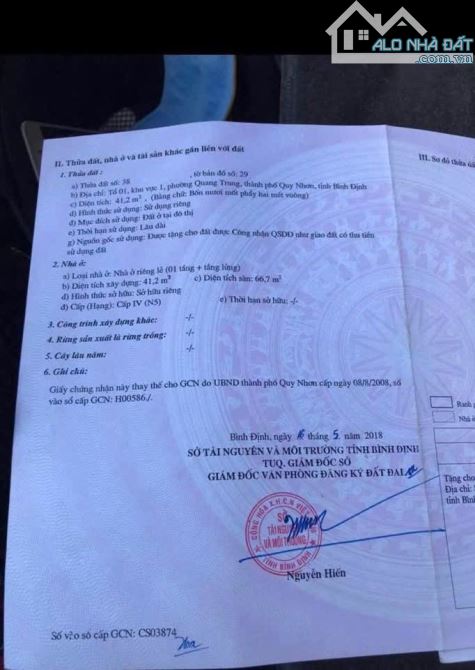 ALO NHÀ ĐẤT
.com.vn
II. Thửa đất, nhà ở và tài sản khác gắn liền với đất
III. Sơ đồ thửa
1. Thửa đất :
a) Thửa đất số: 38 , tờ bản đồ số: 29
b) Địa chỉ: Tổ 01, khu vực 1, phường Quang Trung, thành phố Quy Nhơn, tỉnh Bình Định
c) Diện tích: 41,2 m², (Bằng chữ: Bốn mươi mốt phẩy hai mét vuông)
d) Hình thức sử dụng: Sử dụng riêng
đ) Mục đích sử dụng: Đất ở tại đô thị
e) Thời hạn sử dụng: Lâu dài
g) Nguồn gốc sử dụng: Được tặng cho đất được Công nhận QSDĐ như giao đất có thu tiền
sử dụng đất
2. Nhà ở:
a) Loại nhà ở: Nhà ở riêng lẻ (01 tầng + tầng lửng)
b) Diện tích xây dựng: 41,2 m² c) Diện tích sàn: 66,7 m²
d) Hình thức sở hữu: Sở hữu riêng
đ) Cấp (Hạng): Cấp IV (N5) e) Thời hạn sở hữu: -/-
3. Công trình xây dựng khác: -/-
4. Rừng sản xuất là rừng trồng: -/-
5. Cây lâu năm: -/-
6. Ghi chú:
Giấy chứng nhận này thay thế cho GCN do UBND thành phố Quy Nhơn cấp ngày 08/8/2008, số
vào sổ cấp GCN: H00586/.
Ranh g
Nhà ở
Bình Định, ngày tháng 5 năm 2018
SỞ TÀI NGUYÊN VÀ MÔI TRƯỜNG TỈNH BÌNH ĐỊNH
TUQ. GIÁM ĐỐC SỞ
GIÁM ĐỐC VĂN PHÒNG ĐĂNG KÝ ĐẤT ĐAI
Tặng cho
Địa chỉ:
tỉnh Bình
CỘNG HÒA X.H.C.N VIỆT
SỞ
TÀI NGUYÊN
VÀ MÔI TRƯỜNG
TỈNH BÌNH ĐỊNH
Nguyễn Hiến
Số vào sổ cấp GCN: CS03874